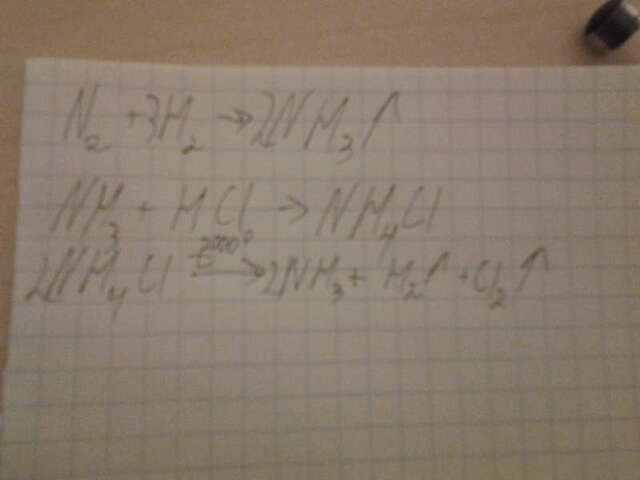 N₂ + 3H₂ → 2NH₃↑
NH₃ + HCl → NH₄Cl
2NH₄Cl 2000° → 2NH₃ + H₂↑ + Cl₂↑